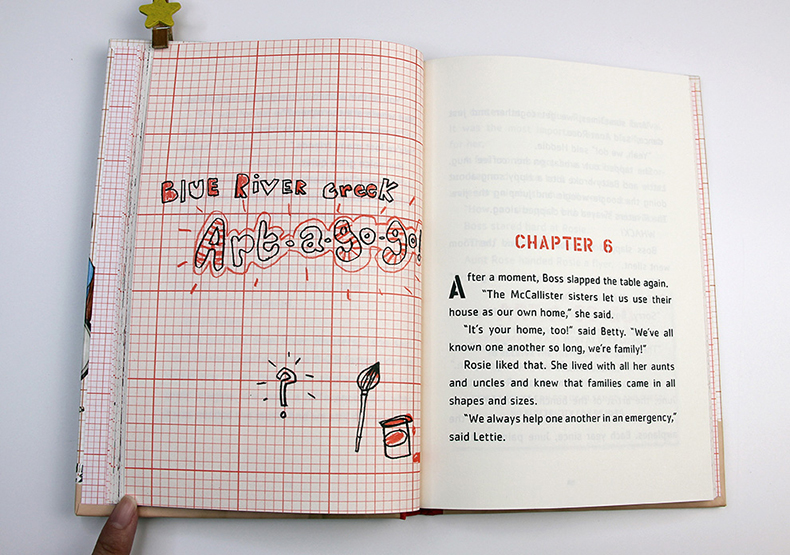 BLUE RIVER creeK
Art-a-go-go!
?
CHAPTER 6
After a moment, Boss slapped the table again.
"The McCallister sisters let us use their
house as our own home," she said.
"It's your home, too!" said Betty. "We've all
known one another so long, we're family!"
Rosie liked that. She lived with all her aunts
and uncles and knew that families came in all
shapes and sizes.
"We always help one another in an emergency,"
said Lettie.